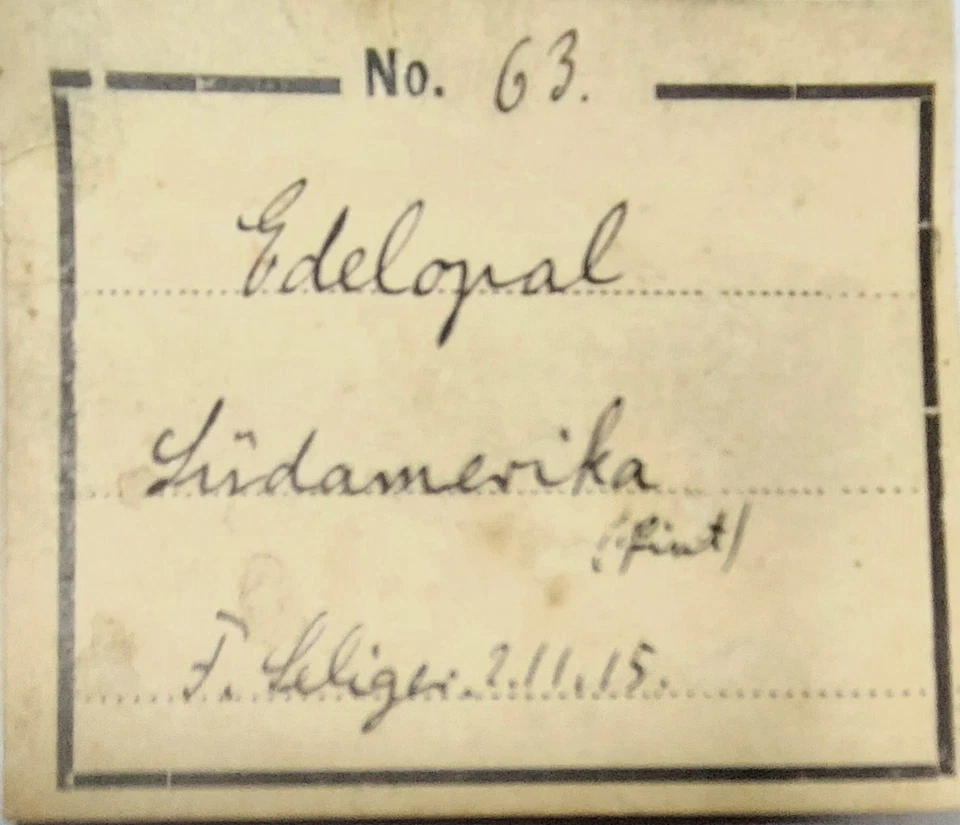 No. 63.
Edelopal
Südamerika
F. Seliger. 2.11.15.